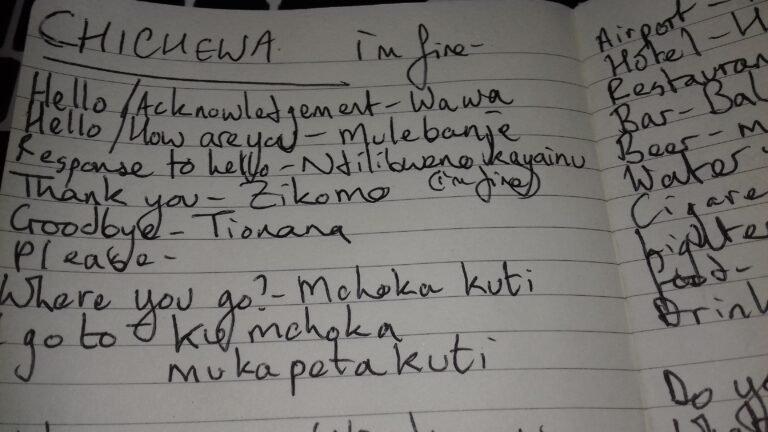 CHICHEWA i'm fine-
Hello /Acknowledgement - Wawa
Hello /How are you - Mulebanje
Response to hello - Ndilibweno kayainu
Thank you - Zikomo (i'm fine)
Goodbye - Tionana
Please -
Where you go? - Mchoka kuti
go to mchoka
mukapeta kuti
Airport -
Hotel -
Restauran
Bar - Bal
Beer - M
Water
Cigare
Lighte
Food -
Drink
Do yo